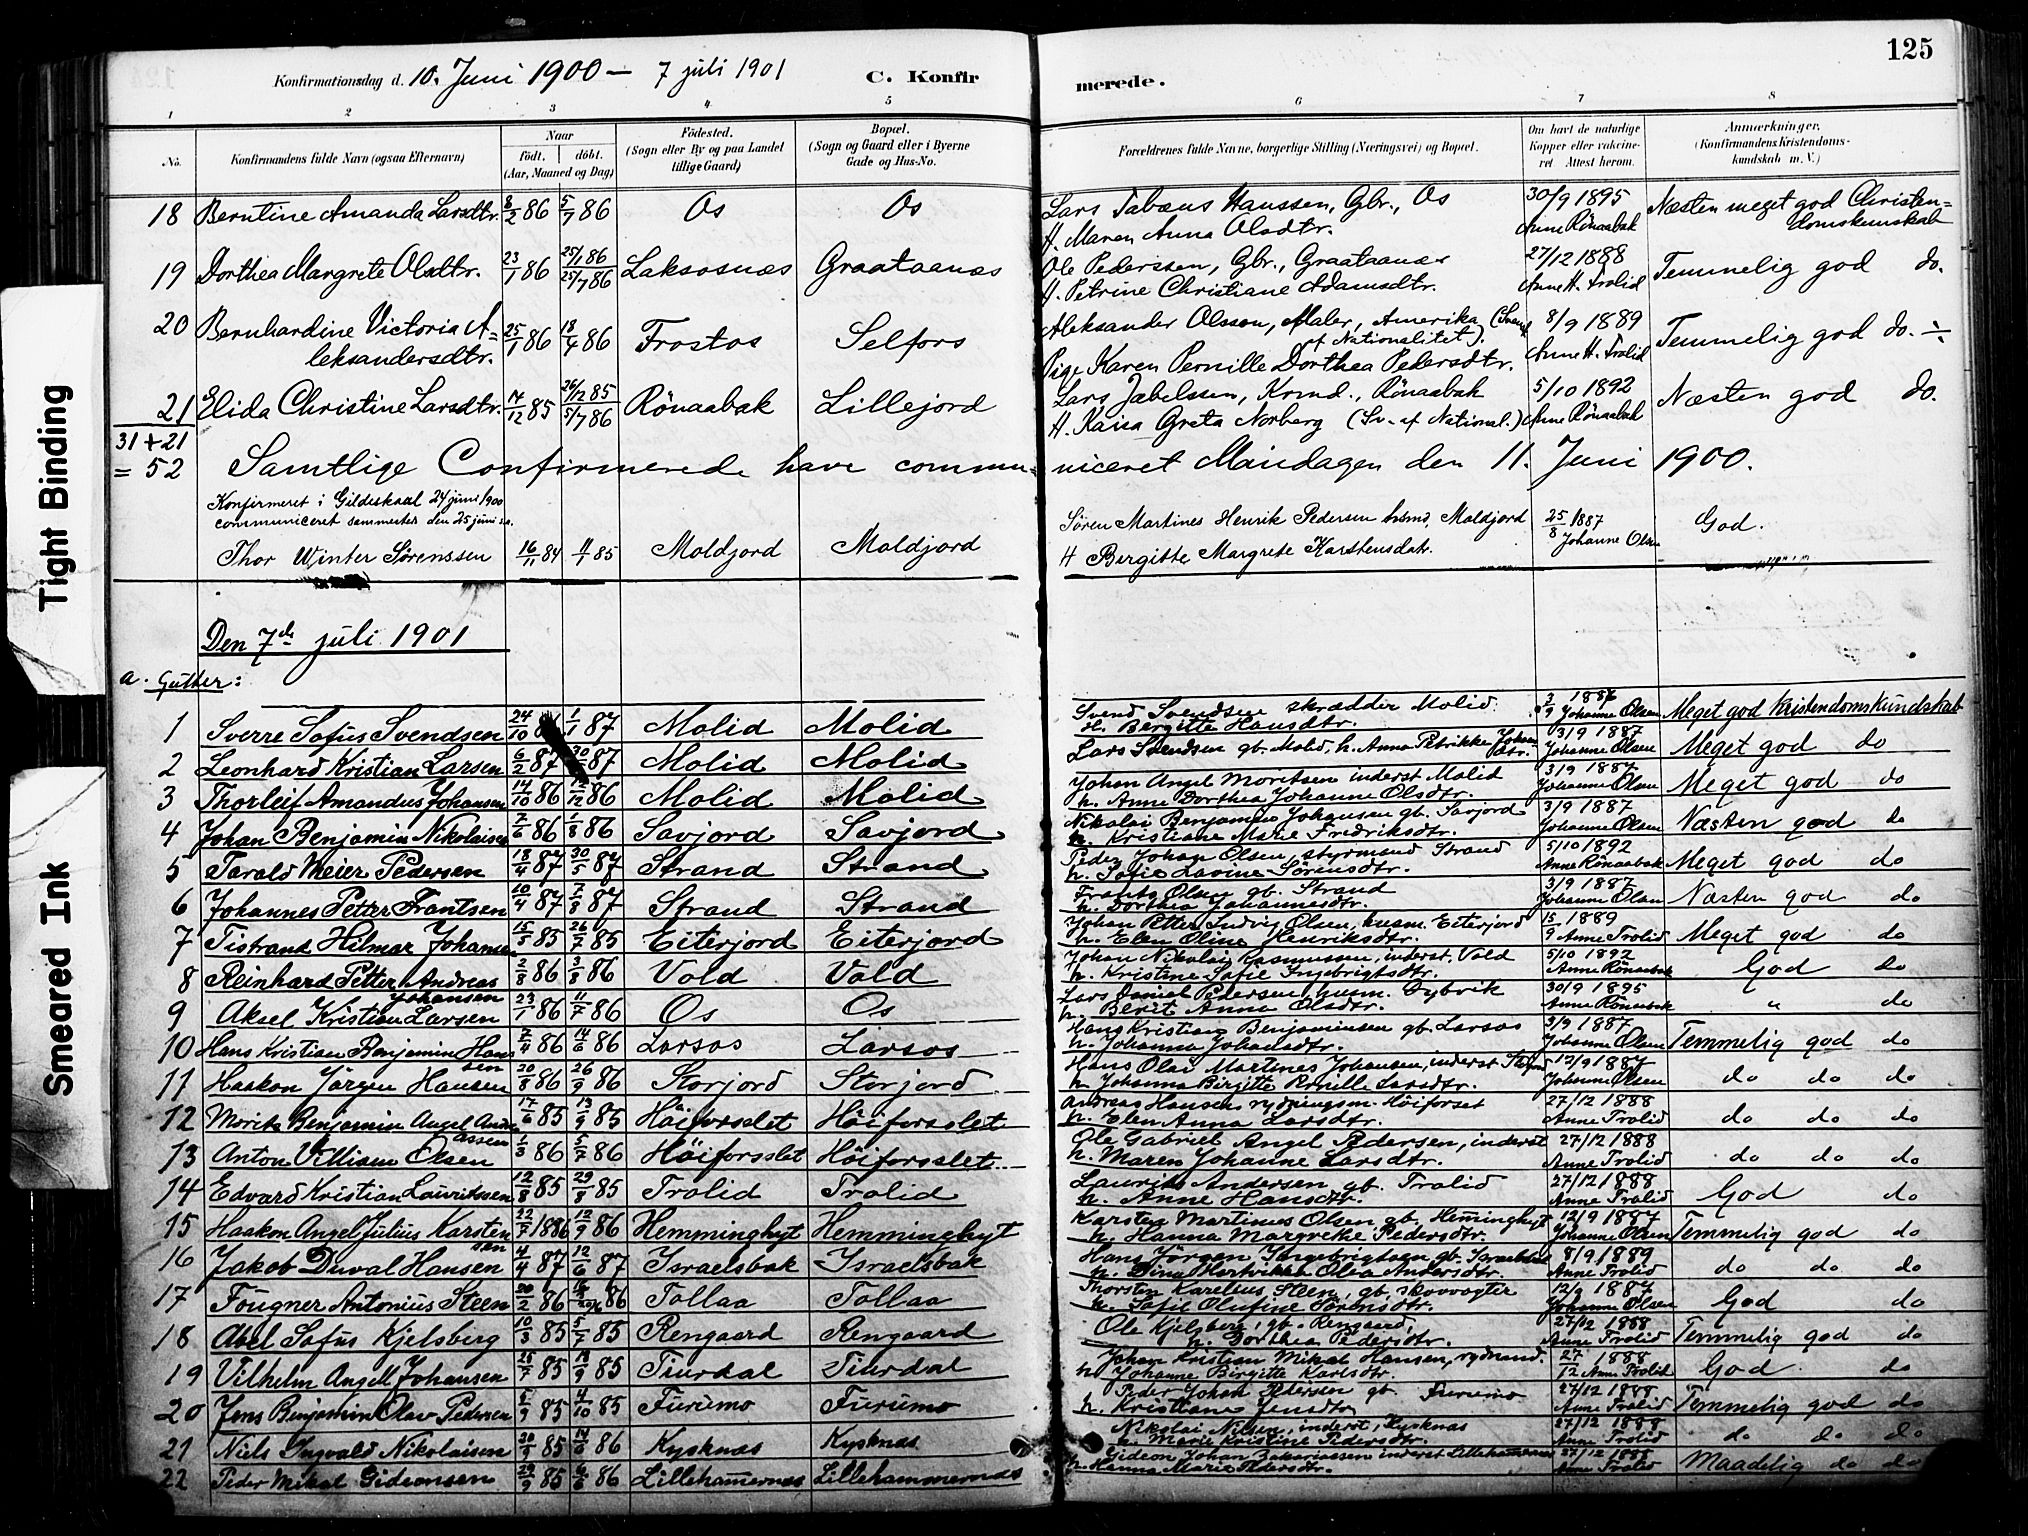 125
Konfirmationsdag d. 10. Juni 1900 — 7 juli 1901 C. Konfirmerede.
1 2 3 4 5 6 7 8
No. Konfirmandens fulde Navn (ogsaa Efternavn) Naar født, døbt. (Aar, Maaned og Dag) Fødested. (Sogn eller By og paa Landet tillige Gaard) Bopæl. (Sogn og Gaard eller i Byerne Gade og Hus-No. Forældrenes fulde Navne, borgerlige Stilling (Næringsvei) og Bopæl. Om havt de naturlige Kopper eller vakcineret Attest herom. Anmærkninger. (Konfirmandens Kristendomskundskab m. V.)
18 Berntine Amanda Larsdtr. 8/2 86 5/9 86 Os Os Lars Tabæus Hanssen, Gbr., Os 30/9 1895 Næsten meget god Christen=
H. Maren Anna Olsdtr. Anne Rönaabak domskunskab
19 Dorthea Margrete Olsdtr. 23/1 86 25/1 86 25/7 86 Laksosnæs Graataanæs Ole Pederssen, Gbr., Graataanæs 27/12 1888 Temmelig god do.
H. Petrine Christiane Adamsdtr. Anne H. Trolid
20 Bernhardine Victoria A= 25/1 86 18/4 86 Frostos Selfors Aleksander Olsson, Maler, Amerika (Svensk af Nationalitet). 8/9 1889 Temmelig god do. ÷
leksandersdtr. Pige Karen Pernille Dorthea Pedersdtr. Anne H. Trolid
21 Elida Christine Larsdtr. 14/12 85 26/12 85 5/7 86 Rönaabak Lillejord Lars Jabelssen, Krmd., Rönaabak 5/10 1892 Næsten god do.
H. Kaisa Greta Norberg (Sv. af National.) Anne Rönaabak
31 + 21
= 52 Samtlige Confirmerede have communiceret Mandagen den 11. Juni 1900.
Konfirmeret i Gildeskaal 24 juni 1900
communiceret sammesteds den 25 juni s.a.
Thor Winter Sørenssen 16/11 84 11/1 85 Moldjord Moldjord Søren Martines Henrik Pedersen husmd, Moldjord 25/8 1887 God.
H Birgitte Margrete Karstensdatr. Johanne Olsen
Den 7de juli 1901
a. Gutter:
1 Sverre Sofus Svendsen 24/10 1/1 87 Molid Molid Svend Svendsen skrædder Molid. 3/9 1886 Meget god Kristendomskundskab
H. Birgitte Hansdtr. Johanne Olsen
2 Leonhard Kristian Larsen 6/2 87 87 Molid Molid Lars Svendsen gb. Molid, h. Anna Petrikke Johansdtr. 3/9 1887 Johanne Olsen Meget god do
3 Thorleif Amandus Johansen 14/10 86 12/12 86 Molid Molid Johan Angel Moritsen inderst Molid 3/9 1887 Meget god do
h. Anne Dorthea Johanne Olsdtr. Johanne Olsen
4 Johan Benjamin Nikolaisen 7/6 86 1/8 86 Savjord Savjord Nikolai Benjamin Johansen gb. Savjord 3/9 1887 Næsten god do
h. Kristiane Marie Fredriksdtr. Johanne Olsen
5 Tarald Meier Pedersen 18/4 87 30/5 87 Strand Strand Peder Johan Olsen, styrmand Strand 5/10 1892 Meget god do
h. Sofie Lavine Sörensdtr. Anne Rönaabak
6 Johannes Petter Frantsen 10/4 87 7/8 87 Strand Strand Frants Olsen gb. Strand 3/9 1887 Næsten god do
h. Dorthea Johannesdtr. Johanne Olsen
7 Tistrand Hilmar Johansen 15/5 85 26/7 85 Eiterjord Eiterjord Johan Petter Ludvig Olsen, husm. Eiterjord 15/9 1889 Meget god do
h. Elen Oline Henriksdtr. Anne Trolid
8 Reinhard Petter Andreas Johansen 2/8 86 3/8 86 Vold Vold Johan Nikolai Rasmussen, inderst. Vold 5/10 1892 God do
h. Kristine Sofie Ingebrigtsdtr. Anne Rönaabak
9 Aksel Kristian Larsen 23/1 86 11/7 86 Os Os Lars Daniel Pedersen, husm. Dybvik 30/9 1895 " do
h. Berit Anna Olsdtr. Anne Rönaabak
10 Hans Kristian Benjamin Hansen 2/4 86 14/6 86 Larsos Larsos Hans Kristian Benjaminsen gb. Larsos 3/9 1887 Temmelig god do
h. Johanna Johansdtr. Johanne Olsen
11 Haakon Jörgen Hansen 20/8 86 26/9 86 Storjord Storjord Hans Olai Martines Johansen, inderst 12/9 1887 do do do
h. Johanna Birgitte Pernille Larsdtr. Johanne Olsen
12 Morits Benjamin Angel Andreassen 17/6 85 13/9 85 Höiforsslet Höiforsslet Andreas Hansen rydningsm. Höiforset 27/12 1888 do do do
h. Elen Anna Larsdtr. Anne Trolid
13 Anton Villiam Olsen 1/3 86 5/7 86 Höiforsslet Höiforsslet Ole Gabriel Angel Pedersen, inderst 27/12 1888 do do do
h. Maren Johanne Larsdtr. Anne Trolid
14 Edvard Kristian Lauritssen 12/8 85 29/8 85 Trolid Trolid Laurits Andersen gb. Trolid 27/12 1888 God do
h. Anne Hansdtr. Anne Trolid
15 Haakon Angel Julius Karstensen 22/7 1886 12/9 86 Hemminghyt Hemminghyt Karsten Martinus Olsen, gb. Heminghyt 12/9 1887 Temmelig god do
h. Hanna Margrethe Pedersdtr. Johanne Olsen
16 Jakob Duval Hansen 4/4 87 12/6 87 Israelsbak Israelsbak Hans Jörgen Ingebrigtsen gb. Israelsbak 8/9 1889 do do do
h. Dina Hartvikke Olea Andersdtr. Anne Trolid
17 Fougner Antonius Steen 20/2 86 86 Tollaa Tollaa Thorsten Karelius Steen, gb. skovvogter 12/9 1887 God do
h. Sofie Olufine Sörensdtr. Johanne Olsen
18 Axel Sofus Kjelsberg 10/3 85 5/7 85 Rengaard Rengaard Ole Kjelsberg, gb. Rengaard, 27/12 1888 Temmelig god do
h. Dorthea Pedersdtr. Anne Trolid
19 Vilhelm Angell Johansen 25/7 85 13/9 85 Tiurdal Tiurdal Johan Kristian Mikal Hansen, rydnand. 27/12 1888 God do
h Johanne Birgitte Karlsdtr. Anne Trolid
20 Jens Benjamin Olav Pedersen 5/9 85 4/10 85 Furumo Furumo Peder Johan Pedersen gb. Furumo 27/12 1888 Temmelig god do
h. Kristiane Jensdtr Anne Trolid
21 Niels Ingvald Nikolaisen 20/9 85 14/6 86 Kysknæs Kysknæs Nikolai Nilsen, inderst, Kysknæs 27/12 1888 do do do
h. Marie Kristine Pedersdtr. Anne Trolid
22 Peder Mikal Gideonsen 29/9 85 86 Lillehammernæs Lillehammernæs Gideon Johan Zakariassen inderst Lillehammernæs 27/12 1888 Maadelig do do
h. Hanna Marie Pedersdtr. Anne Trolid
Tight Binding
Smeared Ink